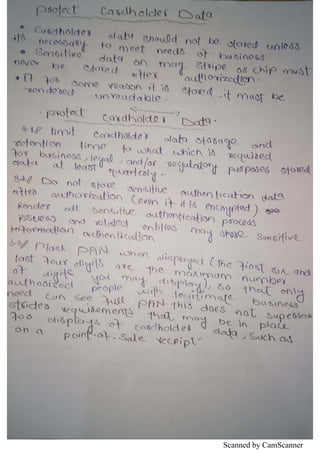 protect Cardholder Data
• Cardholder data should not be stored unless
it's necessary to meet needs of business
• Sensitive data on mag stripe or chip must
never be stored after authorization.
• If for some reason it is stored, it must be
rendered unreadable.
protect cardholder Data.
3.1// limit cardholder data storage and
retention time to what which is required
for business, legal, and/or regulatory purposes stored
data at least quarterly.
3.2// Do not store sensitive authentication data
after authorization (even if it is encrypted)
Render all sensitive authentication process
issuers and related entities may store sensitive
information authentication.
3.3// Mask PAN when displayed (the first six and
last four digits are the maximum number
of digits you may display), so that only
authorized people with legitimate business
need can see full PAN this does not supessed
stricter requirements that may be in place
for displays of cardholder data, such as
on a point-of-sale receipt.
Scanned by CamScanner